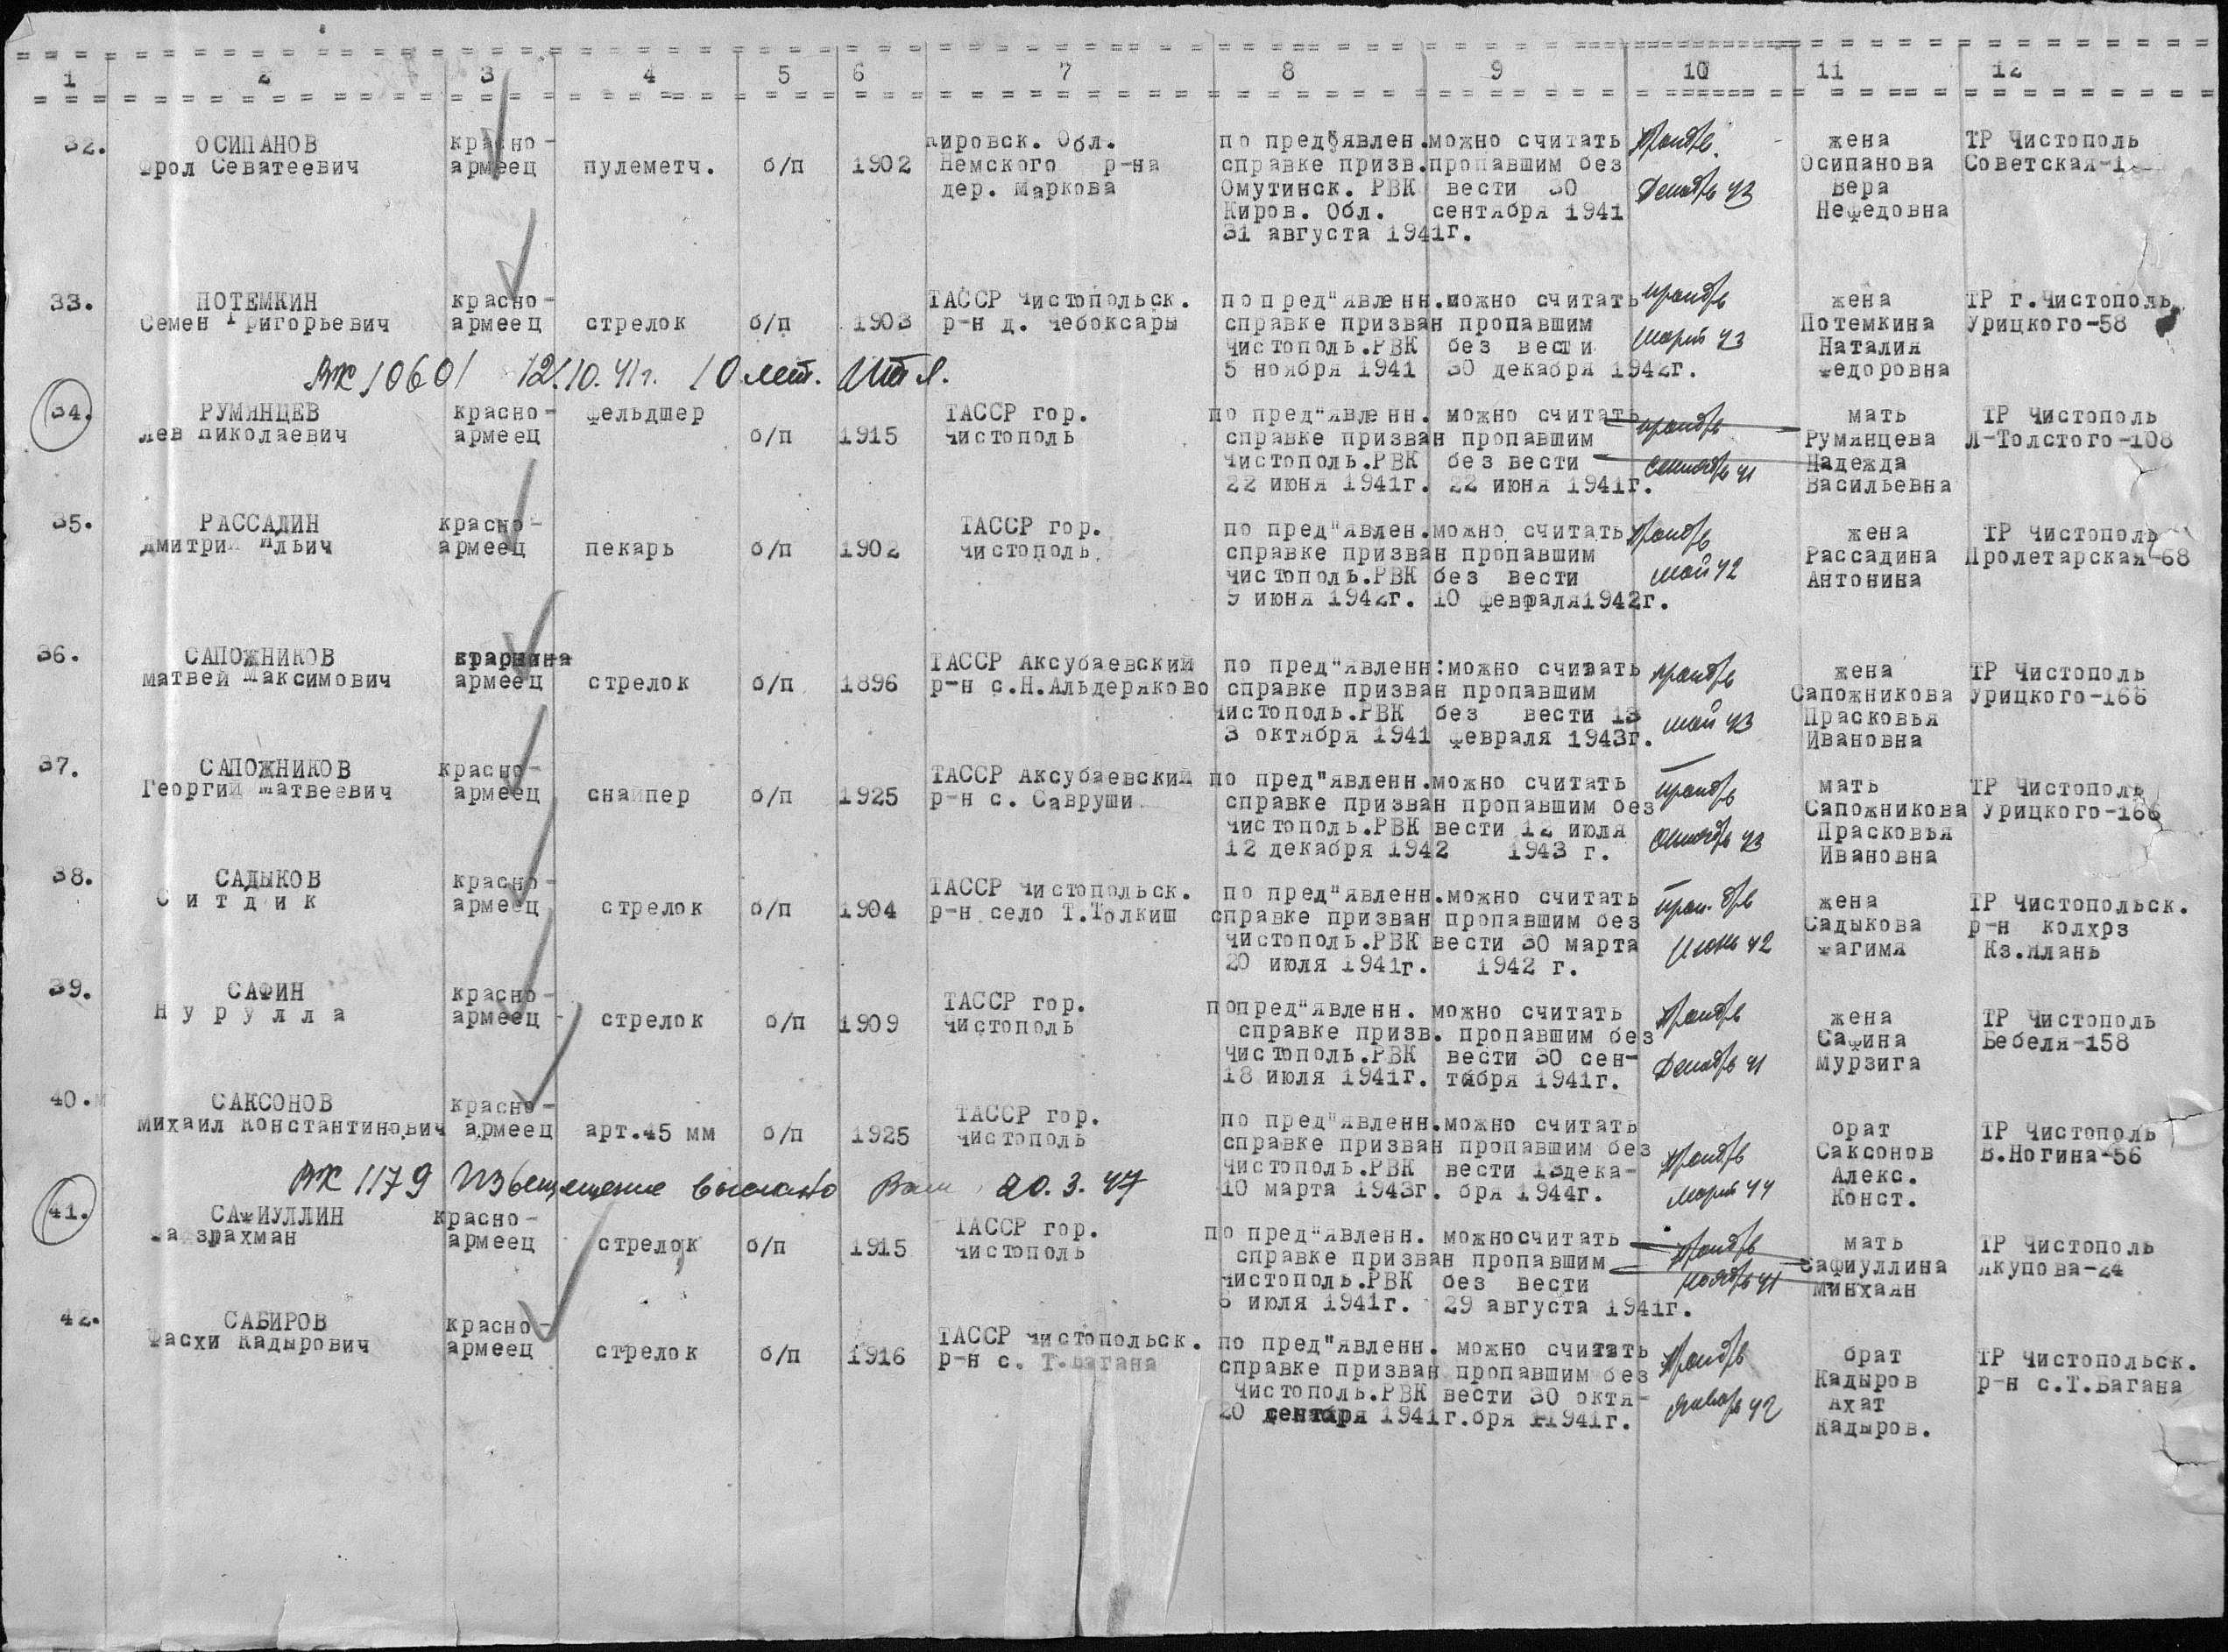 1 2 3 4 5 6 7 8 9 10 11 12
32. ОСИПАНОВ красно- кировск. Обл. по предъявлен. можно считать пропбв. жена ТР Чистополь
Фрол Севатеевич армеец пулеметч. б/п 1902 Немского р-на справке призв. пропавшим без Осипанова Советская-1
дер. Маркова Омутинск. РВК вести 30 Декабрь 43 Вера
Киров. Обл. сентября 1941 Нефедовна
31 августа 1941г.
33. ПОТЕМКИН красно- ТАССР Чистопольск. по пред"явленн. можно считать пропбв жена ТР г.Чистополь
Семен Григорьевич армеец стрелок б/п 1903 р-н д. Чебоксары справке призван пропавшим Потемкина Урицкого-58
Чистополь.РВК без вести март 43 Наталия
5 ноября 1941 30 декабря 1942г. Федоровна
ВК 10601 12.10.41г. 10 лет. ИТЛ.
34. РУМЯНЦЕВ красно- фельдшер ТАССР гор. по пред"явленн. можно считать пропбв мать ТР Чистополь
Лев Николаевич армеец б/п 1915 Чистополь справке призван пропавшим Румянцева Л-Толстого-108
Чистополь.РВК без вести сентябрь 41 Надежда
22 июня 1941г. 22 июня 1941г. Васильевна
35. РАССАДИН красно- ТАССР гор. по пред"явлен. можно считать пропбв жена ТР Чистополь
Дмитрий Ильич армеец пекарь б/п 1902 Чистополь справке призван пропавшим Рассадина Пролетарская-68
Чистополь.РВК без вести май 42 Антонина
9 июня 1942г. 10 февраля1942г.
36. САПОЖНИКОВ ТАССР Аксубаевский по пред"явленн: можно считать пропбв жена ТР Чистополь
Матвей Максимович армеец стрелок б/п 1896 р-н с.Н.Альдеряково справке призван пропавшим Сапожникова Урицкого-166
Чистополь.РВК без вести 13 май 43 Прасковья
3 октября 1941 февраля 1943г. Ивановна
37. САПОЖНИКОВ красно- ТАССР Аксубаевский по пред"явленн. можно считать пропбв мать ТР Чистополь
Георгий Матвеевич армеец снайпер б/п 1925 р-н с. Савруши справке призван пропавшим без Сапожникова Урицкого-166
Чистополь.РВК вести 12 июля октябрь 43 Прасковья
12 декабря 1942 1943 г. Ивановна
38. САДЫКОВ красно- ТАССР Чистопольск. по пред"явленн. можно считать проп. бв жена ТР Чистопольск.
С и т д и к армеец стрелок б/п 1904 р-н село Т.Толкиш справке призван пропавшим без Садыкова р-н колхрз
Чистополь.РВК вести 30 марта Июнь 42 Фагимя Кз.Ялань
20 июля 1941г. 1942 г.
39. САФИН красно- ТАССР гор. попред"явленн. можно считать пропбв жена ТР Чистополь
Н у р у л л а армеец стрелок б/п 1909 Чистополь справке призв. пропавшим без Сафина Бебеля-158
Чистополь.РВК вести 30 сен- Декабрь 41 Мурзига
18 июля 1941г. тября 1941г.
40. САКСОНОВ красно- ТАССР гор. по пред"явленн. можно считать брат ТР Чистополь
Михаил Константинович армеец арт.45 мм б/п 1925 Чистополь справке призван пропавшим без пропбв Саксонов В.Ногина-56
Чистополь.РВК вести 13дека- Алекс.
10 марта 1943г. бря 1944г. март 44 Конст.
ВК 1179 Извещещение выслано 20.3.47
41. САФИУЛЛИН красно- ТАССР гор. по пред"явленн. можносчитать пропбв мать ТР Чистополь
армеец стрелок б/п 1915 Чистополь справке призван пропавшим Сафиуллина Якупова-24
Чистополь.РВК без вести ноябрь 41 Минхаян
6 июля 1941г. 29 августа 1941г.
42. САБИРОВ красно- ТАССР Чистопольск. по пред"явленн. можно считать пропбв брат ТР Чистопольск.
Фасхи Кадырович армеец стрелок б/п 1916 р-н с. Т.Багана справке призван пропавшим без Кадыров р-н с.Т.Багана
Чистополь.РВК вести 30 октя- январь 42 Ахат
20 сентября 1941г. бря 1941г. Кадыров.